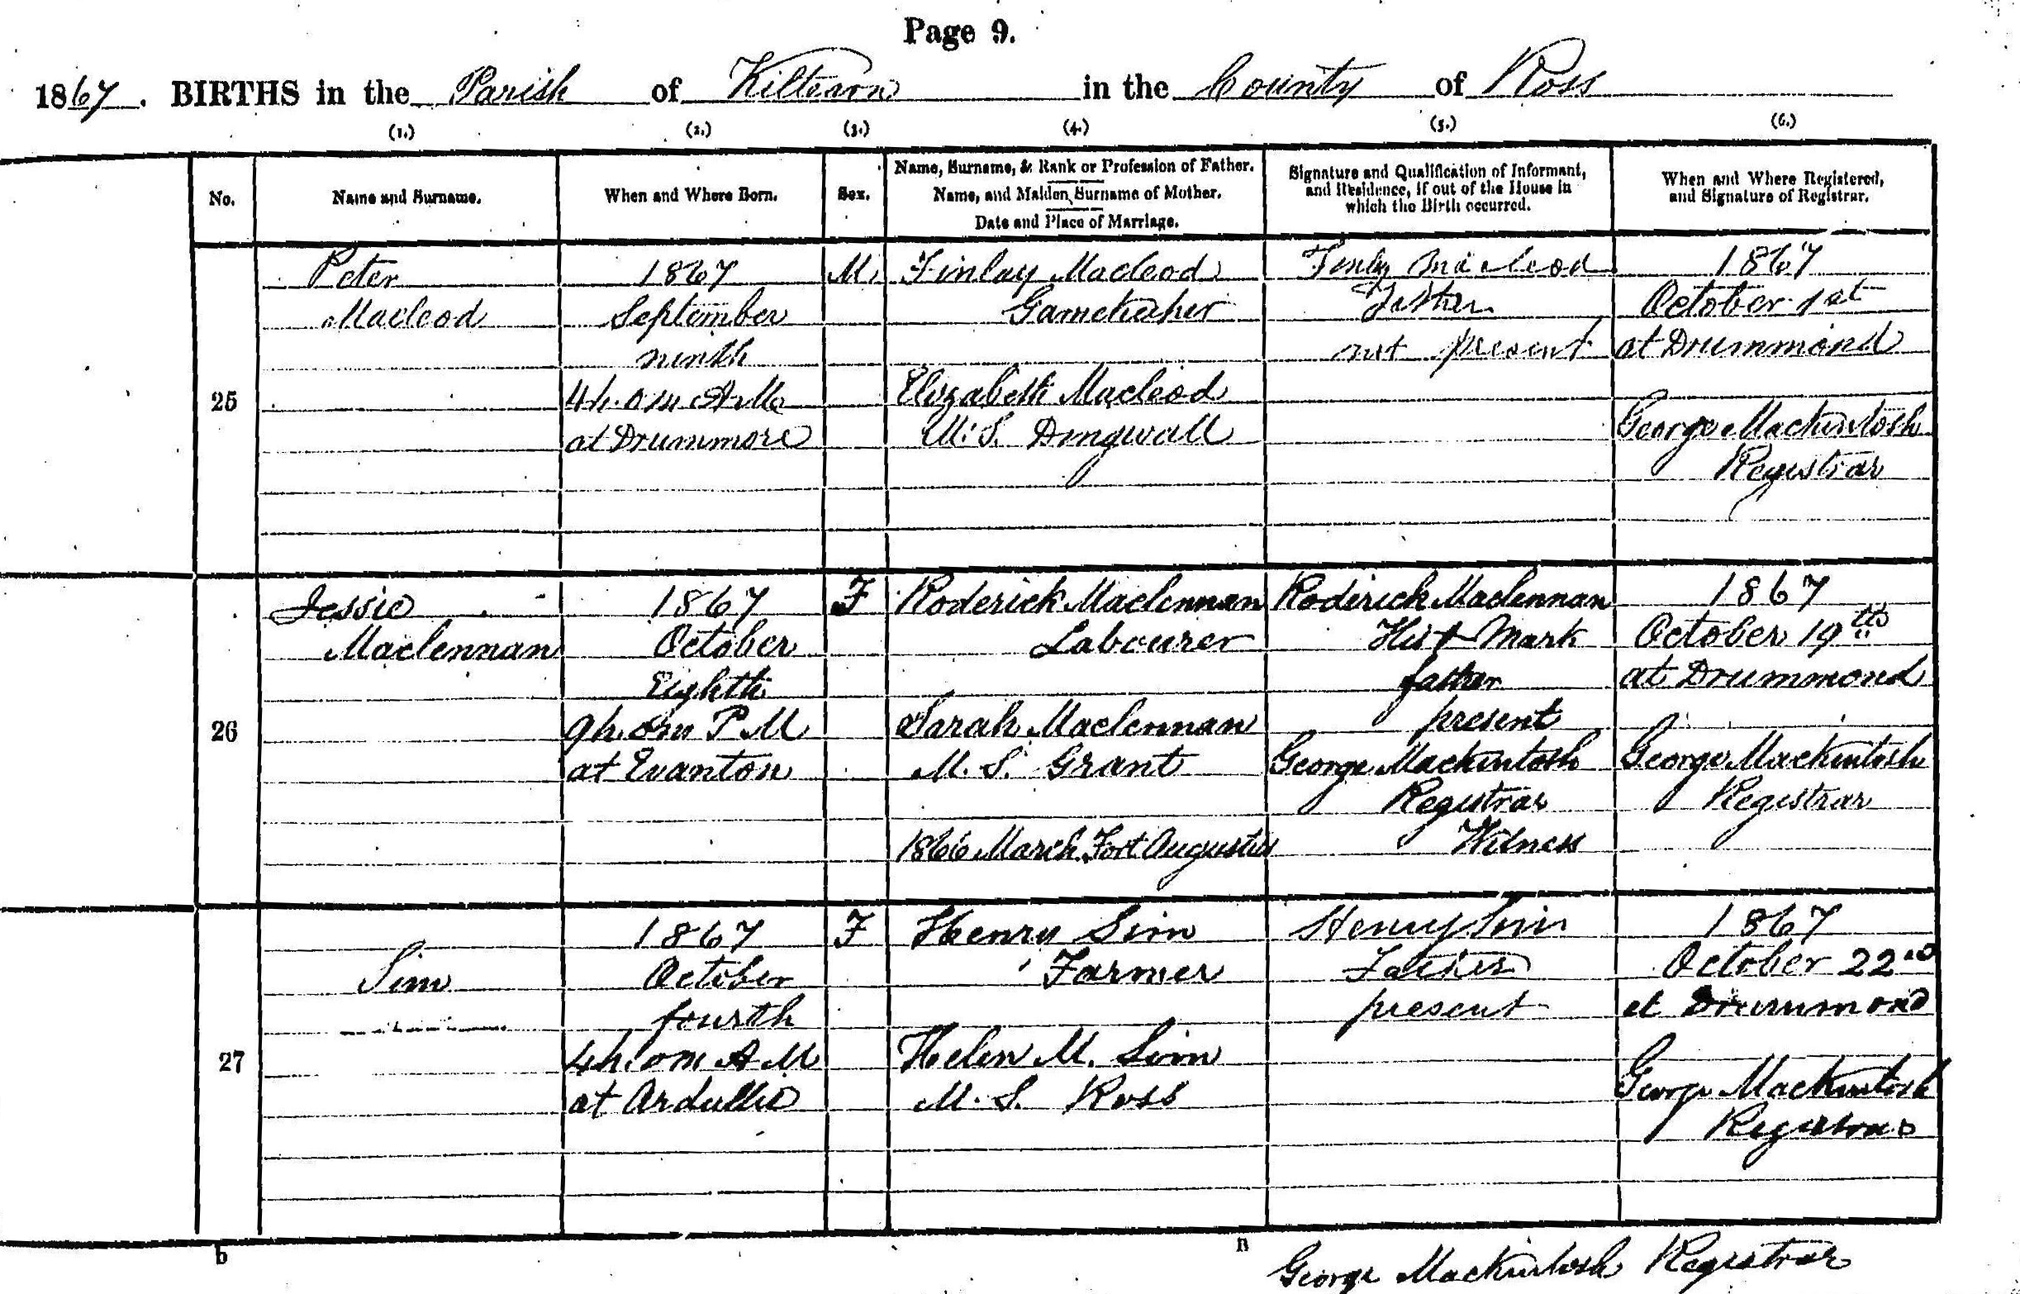 Page 9.
1867. BIRTHS in the Parish of Kiltearn in the County of Ross
(1.) (2.) (3.) (4.) (5.) (6.)
No.
Name and Surname.
When and Where Born.
Sex.
Name, Surname, & Rank or Profession of Father.
Name, and Maiden Surname of Mother.
Date and Place of Marriage.
Signature and Qualification of Informant,
and Residence, if out of the House in
which the Birth occurred.
When and Where Registered,
and Signature of Registrar.
25
Peter
Macleod
1867
September
ninth
4h. 0m A M
at Drummore
M.
Finlay Macleod
Gamekeeper
Elizabeth Macleod
M. S. Dingwall
Finlay Macleod
Father
not present
1867
October 1st
at Drummond
George Mackintosh
Registrar
26
Jessie
Maclennan
1867
October
Eighth
9h. 0m P M
at Evanton
F
Roderick Maclennan
Labourer
Sarah Maclennan
M. S. Grant
1866 March Fort Augustus
Roderick Maclennan
His + Mark
father
present
George Mackintosh
Registrar
Witness
1867
October 19th
at Drummond
George Mackintosh
Registrar
27
Sim
1867
October
fourth
4h. 0m A M
at Ardullie
F
Henry Sim
Farmer
Helen M. Sim
M. S. Ross
Henry Sim
Father
present
1867
October 22nd
at Drummond
George Mackintosh
Registrar
b
n
George Mackintosh Registrar